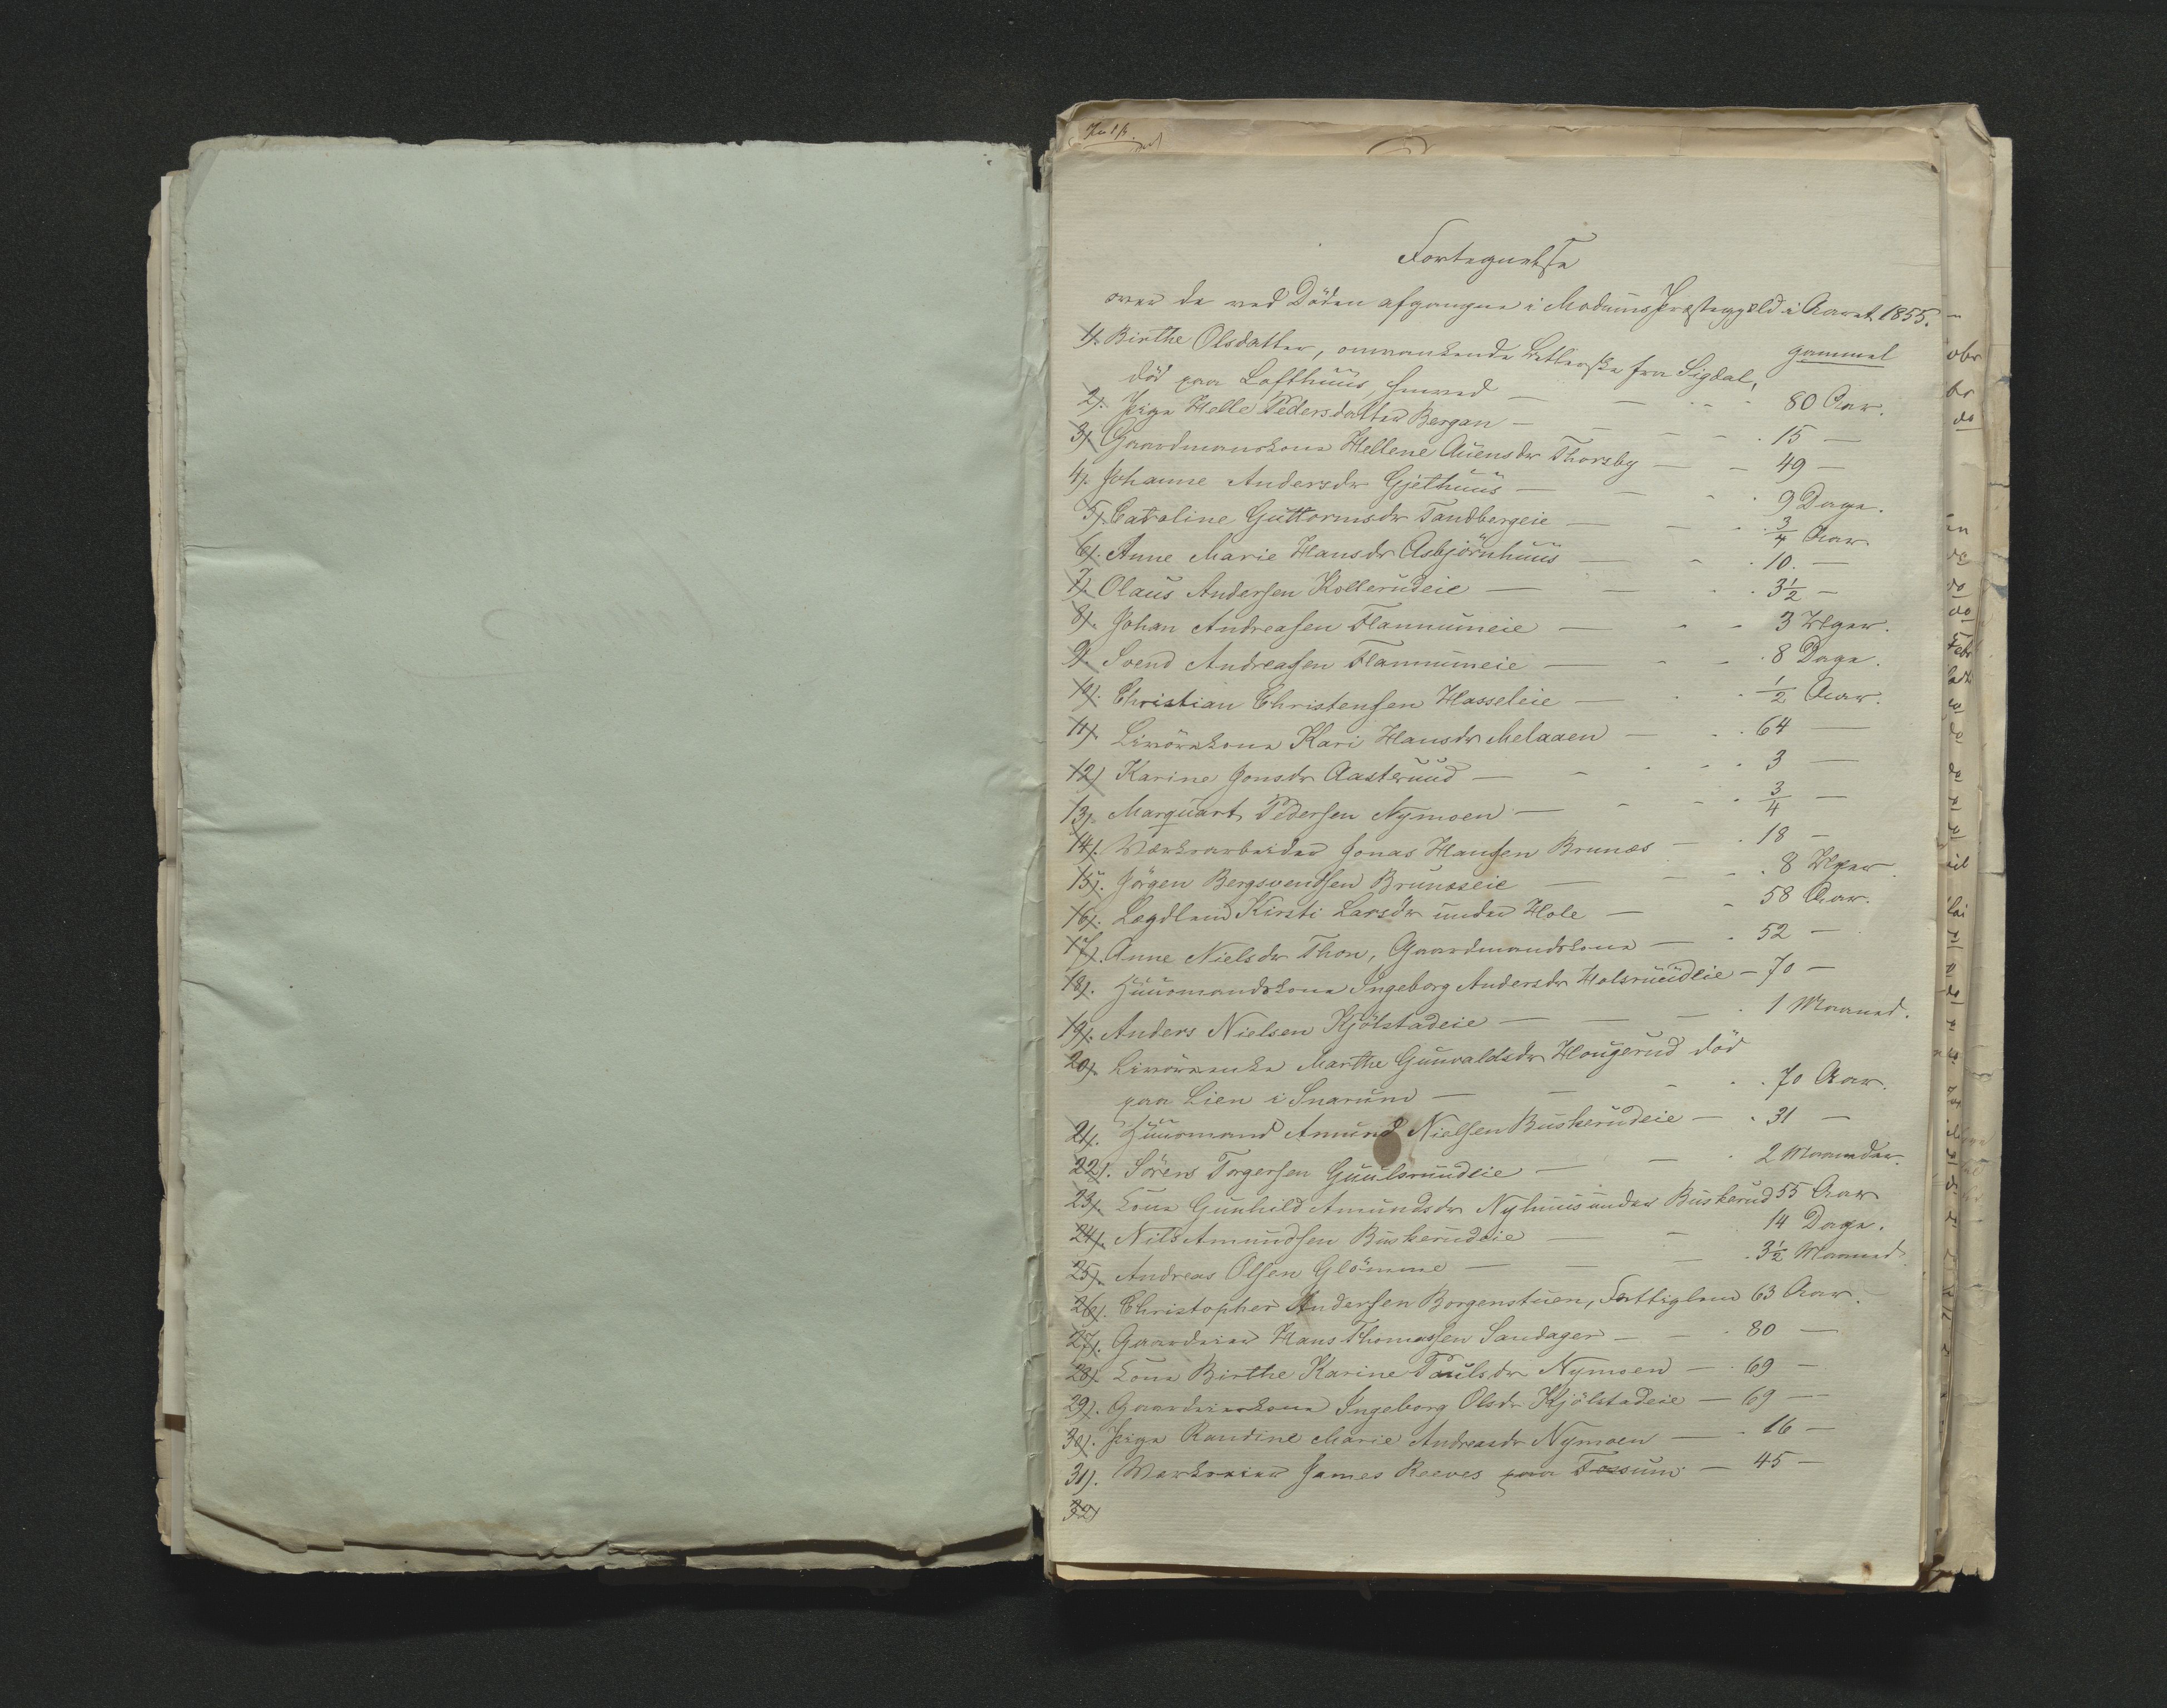 Fortegnelse
over de ved Döden afgangne i Modums Præstegjeld i Aaret 1855.
gammel
1). Birthe Olsdatter, omvankende Betlerske fra Sigdal,
död paa Lofthuus, Snarum — 80 Aar.
2). Pige Helle Pedersdatter Bergan — 15 —
3) Gaardmandskone Hellene Auensdr Thorsby — 49 —
4). Johanne Andersdr Gjethuus — 9 Dage.
5) Caroline Guttormsdr Tandbergeie — 3/4 Aar.
6). Anne Marie Hansdr Asbjörnhuus — 10. —
7). Olaus Andersen Kollerudeie — 3 1/2 —
8). Johan Andreasen Flannumeie — 3 Uger.
9. Svend Andreassen Flannumeie — 8 Dage.
10). Christian Christensen Hasseleie — 1/2 Aar.
11). Livörekone Kari Hansdr Melaaen — 64 —
12) Karine Jonsdr Aasteruud — 3 —
13). Marquart Pedersen Nymoen — 3/4 —
14). Værksarbeider Jonas Hansen Brunæs — 18 —
15). Jörgen Bergsvendsen Brunæseie — 8 Uger.
16). Lægdlem Kirsti Larsdr under Hole — 58 Aar.
17). Anne Nielsdr Thon, Gaardmandskone — 52 —
18). Huusmandskone Ingeborg Andersdr Holsruudeie — 70 —
19). Anders Nielsen Kjölstadeie — 1 Maaned.
20). Livörerenke Marthe Gunvaldsdr Hougerud död
paa Lien i Snarum — 70 Aar.
21). Huusmand Amund Nielsen Buskerudeie — 31 —
22). Sörens Torgersen Guulsruudeie — 2 Maaneder.
23). Kone Gunhild Amundsdr Nyhuus under Buskerud 55 Aar
24). Nils Amundsen Buskerudeie — 14 Dage.
25). Andreas Olsen Glömme — 3 1/2 Maaned.
26). Christopher Andersen Borgenstuen, Fattiglem 63 Aar.
27). Gaardeier Hans Thomassen Sandager — 80 —
28). Kone Birthe Karine Paulsdr Nymoen — 69 —
29). Gaardeierkone Ingeborg Olsdr Kjölstadeie — 69 —
30). Pige Randine Marie Andreasdr Nymoen — 16 —
31). Værkseier James Reeves paa Fossum — 45 —
32)